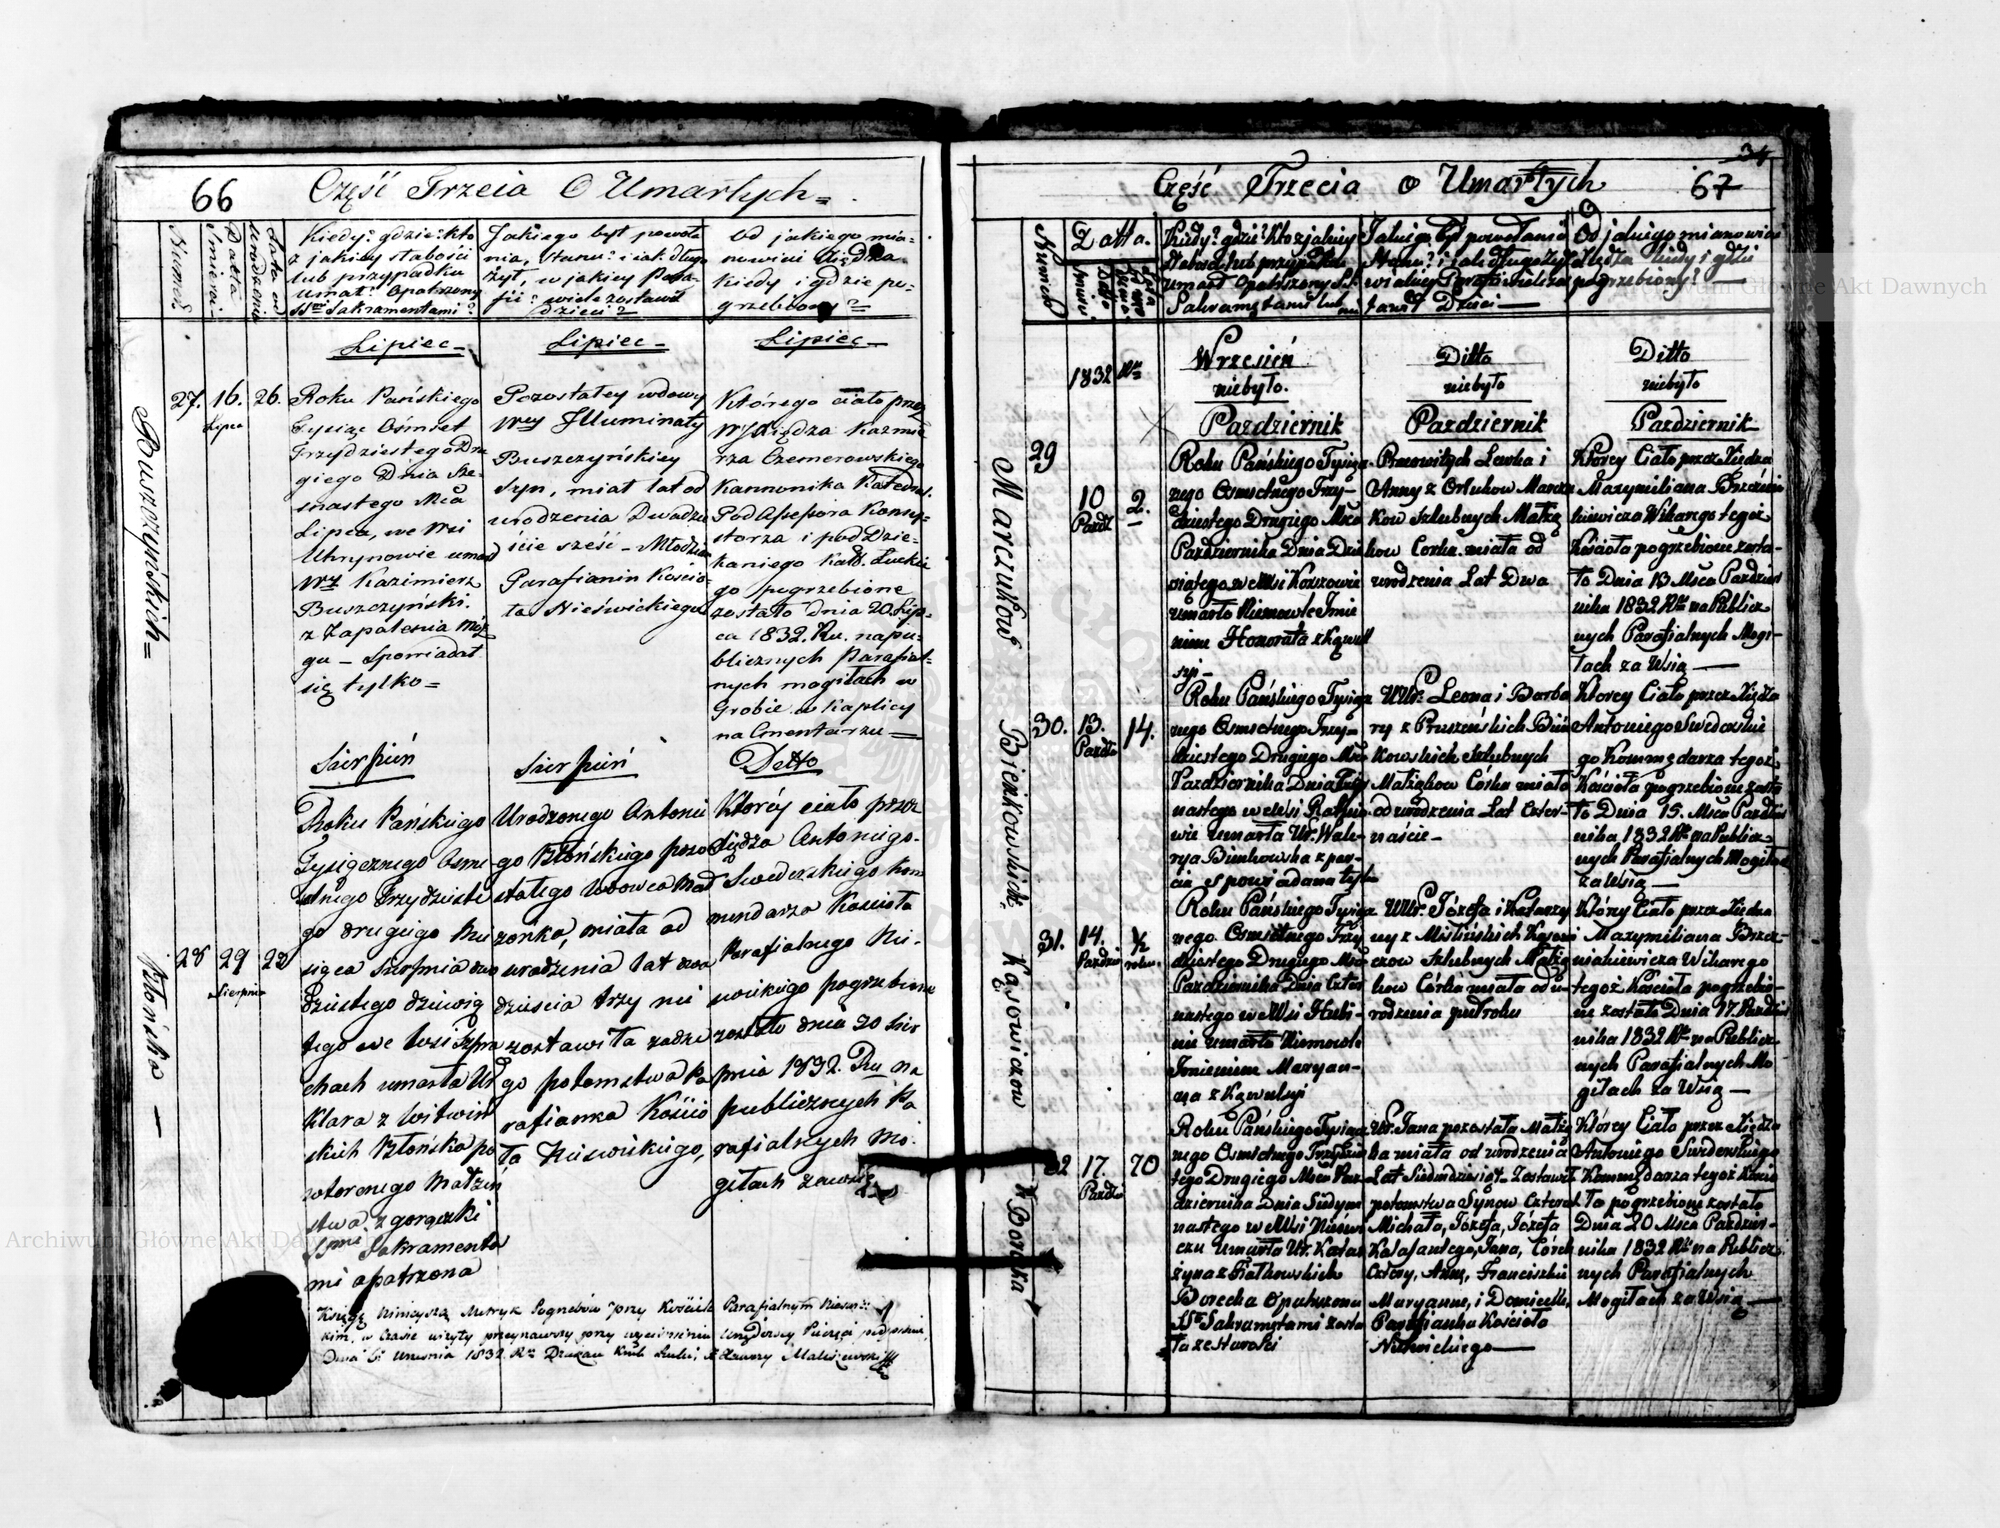 66 Część Trzecia O Umarłych
Numer
Datta Śmierci
Lata od Urodzenia
Kiedy? gdzie? kto
z jakiey słabości
lub przypadku
Umarł? Opatrzony
SSmi Sakramentami?
Jakiego był powoła
nia, Stanu? i jak długo
żył, w jakiey Para
fii? wiele zostawił
dzieci?
Od jakiego mia=
nowicie Xiędza
kiedy i gdzie po=
grzebiony?
Lipiec
Lipiec
Lipiec
Buszczyńskich
27.
16.
Lipca
26.
Roku Pańskiego
Tysiąc Ośmset
Trzydziestego Dru
giego Dnia Sze=
snastego Mca
Lipca, we Wsi
Uhrynowie umarł
Kazimierz
Buszczyński
z Zapalenia Móz
gu — Spowiadał
się tylko=
Pozostałey wdowy
Illuminaty
Buszczyńskiey
Syn, miał lat od
urodzenia Dwadzie
ście sześć — Młodzian
Parafianin Kościo=
ła Nieświckiego
Którego ciało przez
Xiędza Kaźmie
rza Czemerowskiego
Kannonika Katedral.
Pod Assessora Konsy=
storza i pod Dzie=
kaniego Kat. Łuckie
go pogrzebione
zostało dnia 20. Lip=
ca 1832. Ru. na pu=
blicznych Parafial=
nych mogiłach w
Grobie w Kaplicy
na Cmentarzu
Sierpień
Sierpień
Detto
Błońska
28
29
Sierpnia
23
Roku Pańskiego
Tysiącznego Osme
setnego Trzydzieste
go drugiego Mie
siąca Sierpnia dwu
dziestego dziewią
tego we wsi
chach umarła Ur
Klara z Witwiń
skich Błońska po
wtorenego Małżeń
stwa z gorączki
SSmi Sakramenta
mi opatrzona
Urodzonego Antonie
go Błońskiego pozo
stałego Wdowca Mał
żonka, miała od
urodzenia lat dwa
dzieścia trzy nie
zostawiła żadne
go potomstwa Pa
rafianka Kościo
ła Nieświckiego,
Którey ciało przez
Xiędza Antoniego
Swederskiego Kom
mendarza Kościoła
Parafialnego Nie.
świckiego pogrzebione
zostało dnia 20 Sier
pnia 1832. Ru na
publicznych Pa
rafialnych Mo.
giłach za wsią
Księgę niniejszą Metryk Pogrzebów przy Kościele Parafialnym Nieświc
kim, w Czasie wizyty
Dnia 6 Września 1832 Ru Dziekan
34
Część Trzecia o Umarłych 67
Numer
Datta.
Kiedy? gdzie? Kto z jakiey
Słabości lub przypadku
umarł Opatrzony S.S.
Sakramętami lub nie
Jakiego był powołania
Stanu? i jak długo żył
w jakiey Parafii wiele zo
stawił Dzieci —
Od jakiego mianowicie
Xiędza kiedy i gdzie
pogrzebiony? —
1832 Ru
Wrzesień
niebyło.
Ditto
niebyło
Ditto
niebyło
Pazdziernik
Pazdziernik
Pazdziernik
Marczuków
29
10
Pazdz
2.
Roku Pańskiego Tysią=
cznego Osmsetnego Trzy=
dziestego Drugiego Mca
Pazdziernika Dnia Dzie
siątego we Wsi
umarło Niemowle Imie
niem Honorata z Kąwul
syi —
Pracowitych Lewka i
Anny z Marczu
kow Szlubnych Małżą
kow Corka miała od
urodzenia Lat Dwa
Którey Ciało przez Xiędza
Maxymiliana Brzeźnia
kiewicza Wikarego tegoż
Kościoła pogrzebione zosta=
ło Dnia 13 Mca Pazdzier
nika 1832 Ru na Publicz
nych Parafialnych Mogi=
łach za Wsią —
Bienkowskich
30.
13.
Pazdz
14.
Roku Pańskiego Tysią
cznego Osmsetnego Trzy=
dziestego Drugiego Mca
Pazdziernika Dnia Trzy
nastego we Wsi
wie umarła Ur. Wale=
rya Bienkowska z par=
cia spowiadana tylko
WUr. Leona i Barba
ry z Pruszeńskich Bień
kowskich Szlubnych
Małżąkow Córka miała
od urodzenia Lat Czter=
naście —
Którey Ciało przez Xiędza
Antoniego Swederskie
go Kommędarza tegoż
Kościoła pogrzebione zosta
ło Dnia 15. Mca Pazdzier
nika 1832 Ru na Publicz=
nych Parafialnych Mogiłach
za Wsią —
Kąsowiczow
31.
14.
Pazdzi
½
roku
Roku Pańskiego Tysią
cznego Osmsetnego Trzy
dziestego Drugiego Mca
Pazdziernika Dnia Czter
nastego we Wsi Hubi=
nie umarło Niemowle
Imieniem Maryan=
na z Kąwulsyi
WUr. Józefa i Katarzy
ny z Misłińskich Kąsowi
czow Szlubnych Małżą
kow Córka miała od u=
rodzenia pułroku
Któréy Ciało przez Xiędza
Maxymiliana Brzeź=
niakiewicza Wikarego
tegoż Kościoła pogrzebio=
ne zostało Dnia 17. Pazdzier
nika 1832 Ru na Publicz=
nych Parafialnych Mo
giłach za Wsią —
Borecka
32
17.
Pazdz
70
Roku Pańskiego Tysią
cznego Osmsetnego Trzydzies
tego Drugiego Mca Paz=
dziernika Dnia Siedym
nastego we Wsi Nieświ
czu Umarła Ur. Kata
żyna z Fiałkowskich
Borecka Opatrzona
SSmi Sakramętami zosta
ła ze Starości
Ur. Jana pozostała Małżą
ka miała od urodzenia
Lat Siedmdziesiąt. Zostawił
potomstwa Synow Czterech
Michała, Józefa, Józefa
Kalasantego, Jana, Córek
Cztery, Annę, Franciszkę
Maryannę, i Domicellę,
Parafianka Kościoła
Nieświckiego —
Którey Ciało przez Xiędza
Antoniego Swederskiego
Kommędarza tegoż Kościo
ła pogrzebione zostało
Dnia 20 Mca Pazdzier=
nika 1832 Ru na Publicz
nych Parafialnych
Mogiłach za Wsią —
Archiwum Główne Akt Dawnych
Archiwum Główne Akt Dawnych